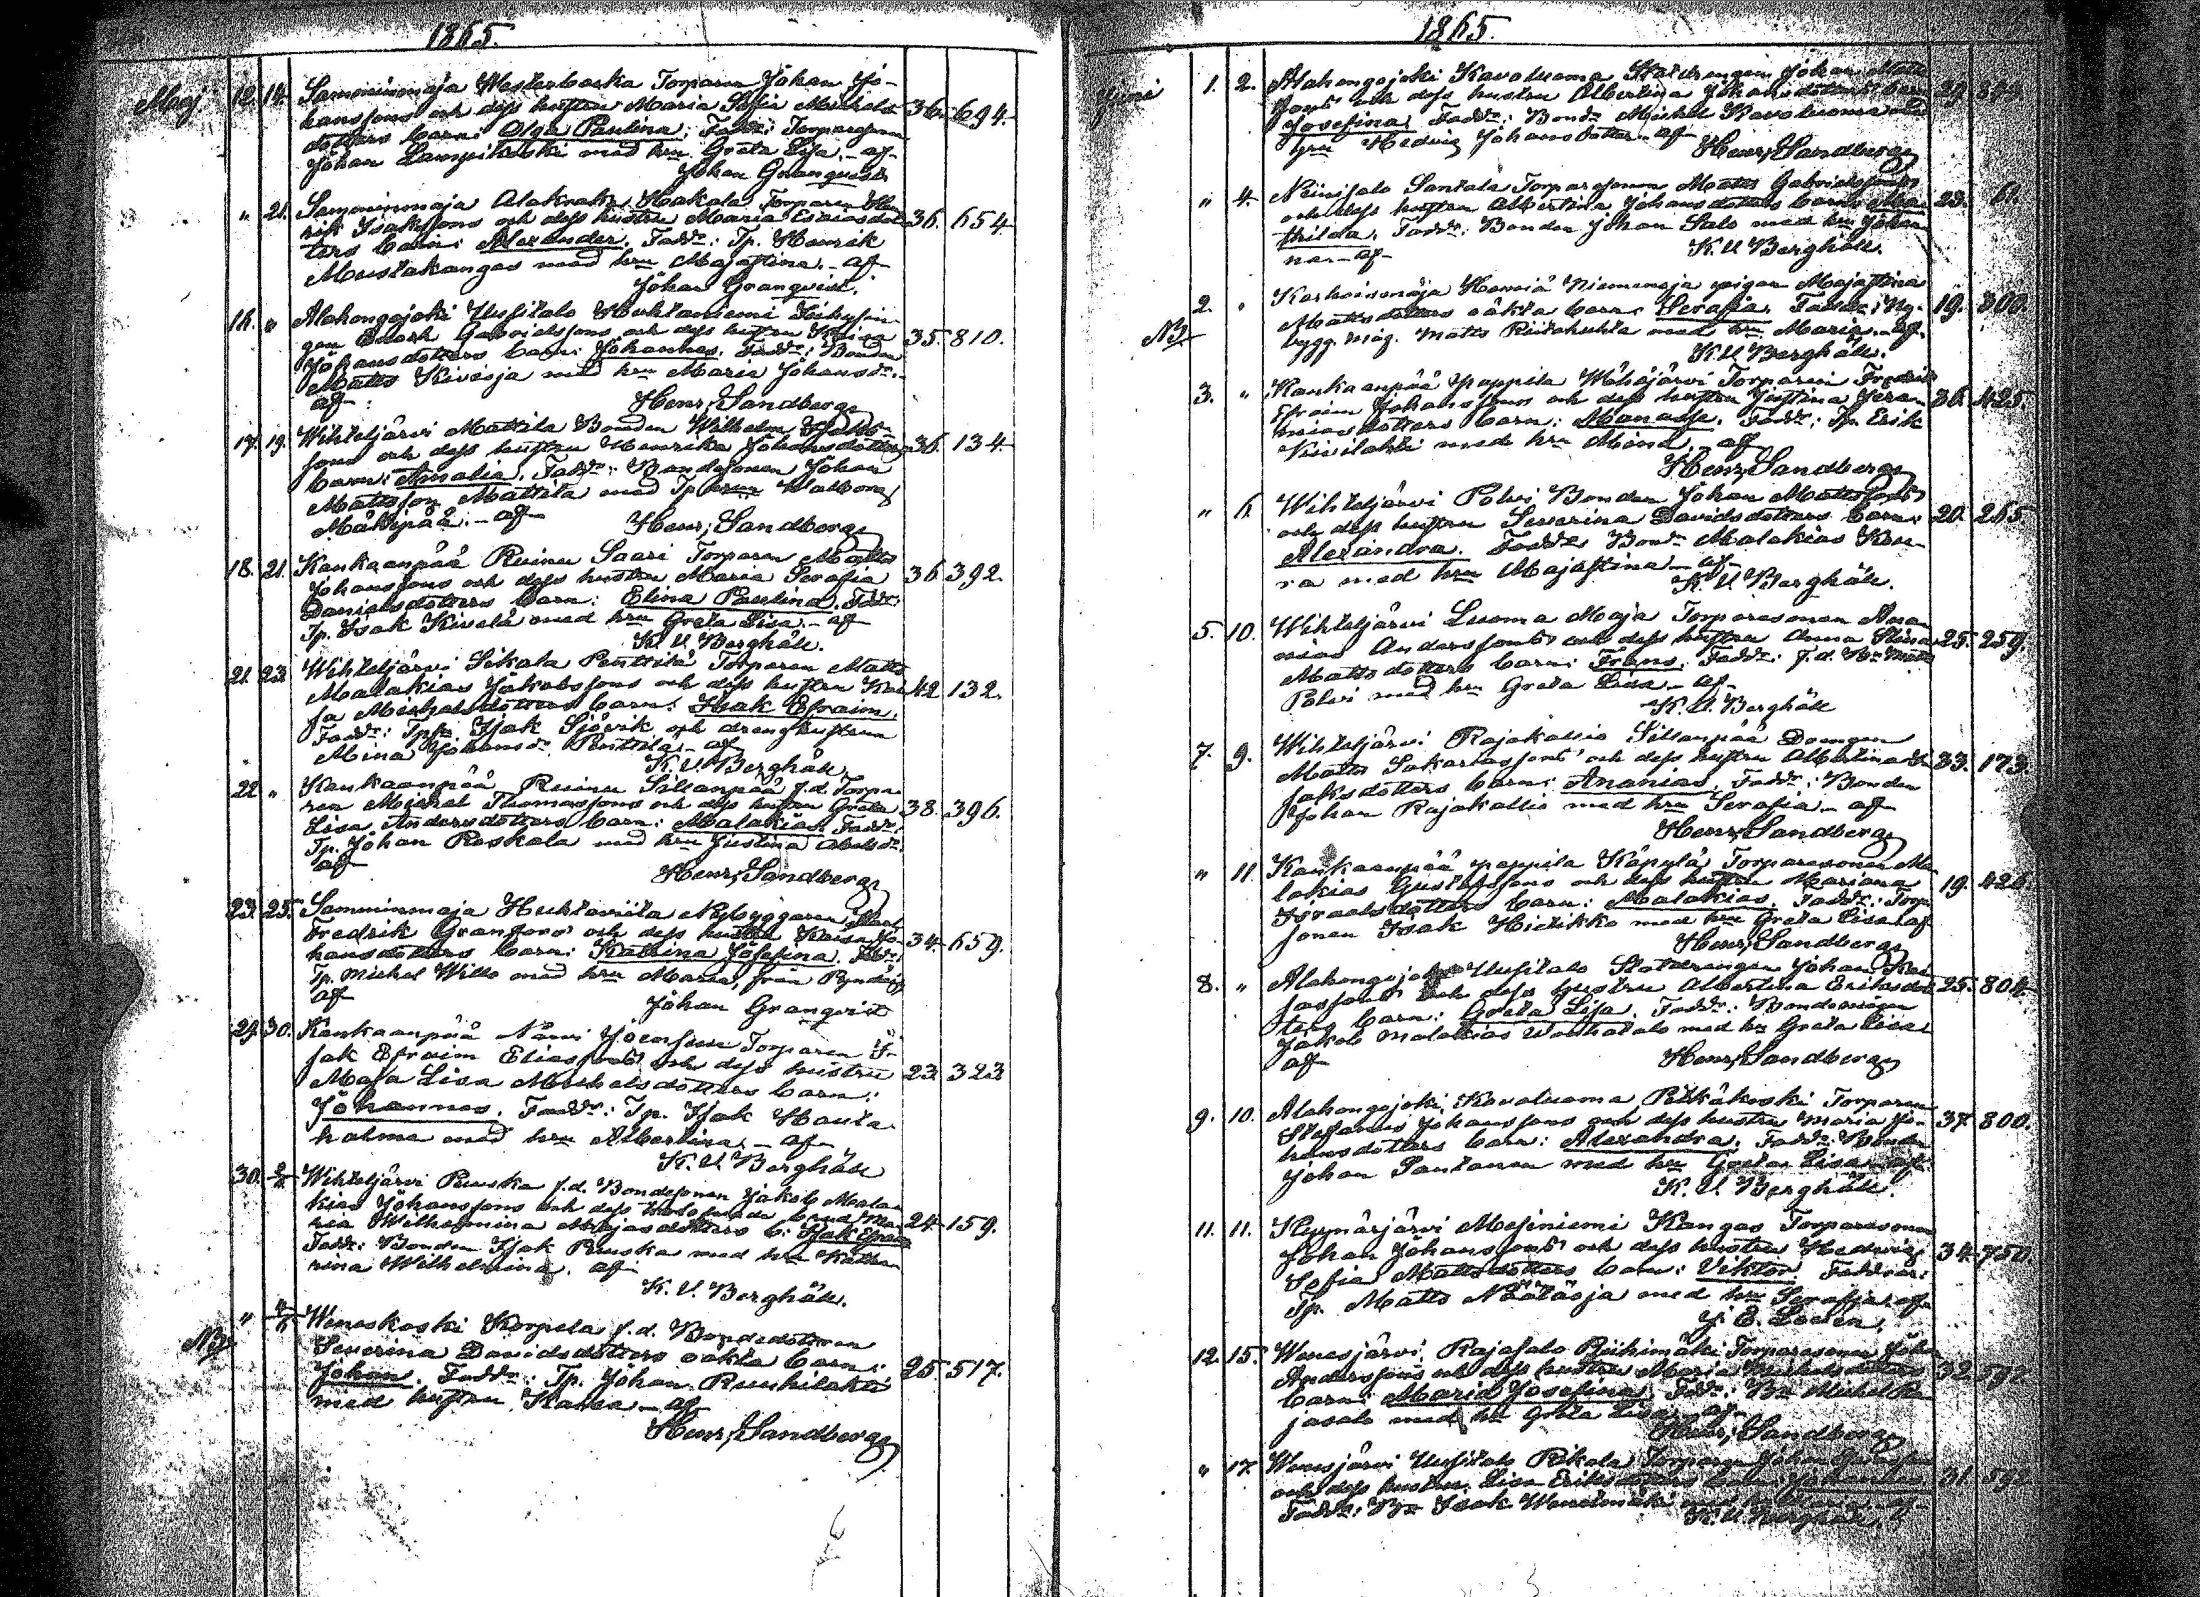 1865.
Maj 12. 14. Samminmaja Westerbacka Torparen Johan Jo-
hanssons och dess hustru Maria Sofia Michels 36. 694.
dotters barn: Olga Paulina; Fadd:r: Torparesonen
Johan Lampikoski med h:ru Greta Lisa.- af
Johan Granqvist
" 21. Samminmaja Alakraka Hakala Torparen Hen-
rik Isakssons och dess hustru Maria Esaiasdot- 36. 654.
ters barn: Alexander. Fadd:r: Tp. Henrik
Mustakangas med h:ru Majastina.- af
Johan Granqvist.
16. " Alahongojoki Uusitalo Huhtaniemi
gen Enock Gabrielssons och dess hustru Kaisa 35. 810.
Johansdotters barn: Johannes. Fadd:r: Bonden
Matts Kivioja med h:ru Maria Johansd:r.
af
Henr; Sandberg
17. 19. Wihteljärvi Mattila Bonden Wilhelm
sons och dess hustru Henrika Johansdotters 36. 134.
barn: Amalia. Fadd:r: Bondesonen Johan
Mattsson Mattila med Tp. h:ru Walborg
Mäkipää.- af
Henr; Sandberg
18. 21. Kankaanpää Ruinu Saari Torparen Matts
Johanssons och dess hustru Maria Serafia 36. 392.
Danielsdotters barn: Elina Paulina. Fadd:r:
Tp. Isak Kivelä med h:ru Greta Lisa.- af
K. U. Berghäll.
21. 23. Wihteljärvi Sikala Penttilä Torparen Matts
Malakias Jakobssons och dess hustru Kai- 42. 132.
sa Michelsdotters barn: Isak Efraim.
Fadd:r: Isak Sjövik och dränghustrun
Mina Johansd:r Penttilä.- af
K. U. Berghäll
22. " Kankaanpää Ruinu Sillanpää f.d. Torpa-
ren Michel Thomassons och dess hustru Greta 38. 396.
Lisa Andersdotters barn: Malakias. Fadd:r:
Tp. Johan Roskala med h:ru Justina Abelsd:r.
af
Henr; Sandberg
23. 25. Samminmaja Huhtaviita Nybyggaren
Fredrik Granfors och dess hustru Kaisa Jo- 34. 659.
hansdotters barn: Katrina Josefina. Fadd:r:
Tp. Michel Wills med h:ru Maria, från
af
Johan Granqvist
29. 30. Kankaanpää Närvi Torparen I-
sak Efraim Eliassons och dess hustru 23. 323
Maja Lisa Michelsdotters barn:
Johannes. Fadd:r: Tp. Isak Hauta-
halme med h:ru Albertina.- af
K. U. Berghäll
30. 2/6 Wihteljärvi Puuska f.d. Bondesonen Jakob Mala-
kias Johanssons och dess trolofvade brud Ma- 24. 159.
ria Wilhelmina b: Isak Efraim
Fadd:r: Bonden Isak Puuska med h:ru Katha-
rina Wilhelmina. af
K. U. Berghäll.
" 4/6 Weneskoski Korpela f.d. Bondedottren
NB Severina Davidsdotters oäkta barn:
Johan. Fadd:r: Tp. Johan Ruuhilahti 25. 517.
med hustru Kaisa.- af
Henr; Sandberg
1865.
Juni 1. 2. Alahongojoki Kavoluoma Statdrängen Johan Matts
sons och dess hustru Albertina Johansdotters barn 29.
Josefina. Fadd:r: Bond:n Michel Kavoluoma med
h:ru Hedvig Johansdotter.- af
Henr; Sandberg
" 4. Niinisalo Santala Torparesonen Matts Gabrielssons
och dess hustru Albertina Johansdotters barn: 23. 61.
Hilda. Fadd:r: Bonden Johan Salo med h:ru Johan-
na.- af
K. U. Berghäll.
2. " Karhoismaja Harviå Niemenmaja pigan Majastina
NB Mattsdotters oäkta barn: Serafia. Fadd:r: Ny- 19. 300.
bygg. måg. Matts Riitahuhta med h:ru Maria.- af
K. U. Berghäll.
3. " Kankaanpää Pappila Wähäjärvi Torparen Fredrik
Efraim Johanssons och dess hustru Justina Jerem- 36. 425.
miasdotters barn: Manasse. Fadd:r: Tp. Erik
Kiviilahti med h:ru Mina.- af
Henr; Sandberg
" 6. Wihteljärvi Polvi Bonden Johan Mattssons
och dess hustru Severina Davidsdotters barn: 20. 265
Alexandra. Fadd:r Bond:n Malakias Keu-
ra med h:ru Majastina.- af
K. U. Berghäll.
5. 10. Wihteljärvi Luoma Maja Torparesonen Ana-
nias Anderssons och dess hustru Anna Stina 25. 259.
Mattsdotters barn: Frans. Fadd:r: f.d. B:n Matts
Polvi med h:ru Greta Lisa.- af
K. U. Berghäll
7. 9. Wihteljärvi Rajakallio Sillanpää Drengen
Matts Sakariassons och dess hustru Albertina I- 33. 173.
saksdotters barn: Ananias. Fadd:r: Bonden
Johan Rajakallio med h:ru Serafia.- af
Henr; Sandberg
" 11. Kankaanpää pappila Käpylä Torparesonen Ma-
lakias Gustafssons och dess hustru Mariana 19. 426.
Israelsdotters barn: Malakias. Fadd:r: Torp-
sonen Isak Hietikko med h:ru Greta Lisa. af
Henr; Sandberg
8. " Alahongojoki Uusitalo Statdrängen Johan
sons och dess hustru Albertina Eriksdot- 25. 804.
ters barn: Greta Lisa. Fadd:r: Bondemågen
Jakob Malakias Wanhatalo med h:ru Greta Lisa
af
Henr; Sandberg
9. 10. Alahongojoki Kavoluoma Pitkäkoski Torparen
Stefanus Johanssons och dess hustru Maria Jo- 37. 800.
hansdotters barn: Alexandra. Fadd:r: Bonden
Johan Santanen med h:ru Greta Lisa.- af
K. U. Berghäll.
11. 11. Hapuärjärvi Mesiniemi Kangas Torparesonen
Johan Johanssons och dess hustru Hedvig 34. 750.
Sofia Mattsdotters barn: Viktor. Faddrar:
Tp. Matts Näätäoja med h:ru Serafia. af
J. E. Lo
12. 15. Wenesjärvi, Rajasalo Riihimäki Torparesonen Johan
Anderssons och dess hustru Maria Michelsdotters 32.
barn: Maria Josefina. Fadd:r: B:n Michel Ra-
jasalo med h:ru Greta Lisa.- af
Henr; Sandberg
" 17. Wenesjärvi Uusitalo Pikala Torparen Johan
och dess hustru Lisa Eriksdotters 31.
Fadd:r: B:n Isak Wenelmäki
K. U. Berghäll.